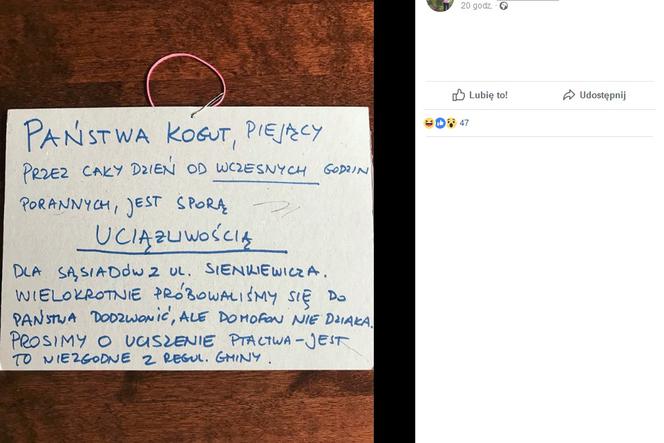 PAŃSTWA KOGUT, PIEJĄCY
PRZEZ CAŁY DZIEŃ OD WCZESNYCH GODZIN
PORANNYCH, JEST SPORĄ
UCIĄŻLIWOŚCIĄ
DLA SĄSIADÓW Z UL. SIENKIEWICZA.
WIELOKROTNIE PRÓBOWALIŚMY SIĘ DO
PAŃSTWA DODZWONIĆ, ALE DOMOFON NIE DZIAŁA.
PROSIMY O UCISZENIE PTACTWA - JEST
TO NIEZGODNE Z REGUL. GMINY.
20 godz. ·
Lubię to! Udostępnij
47